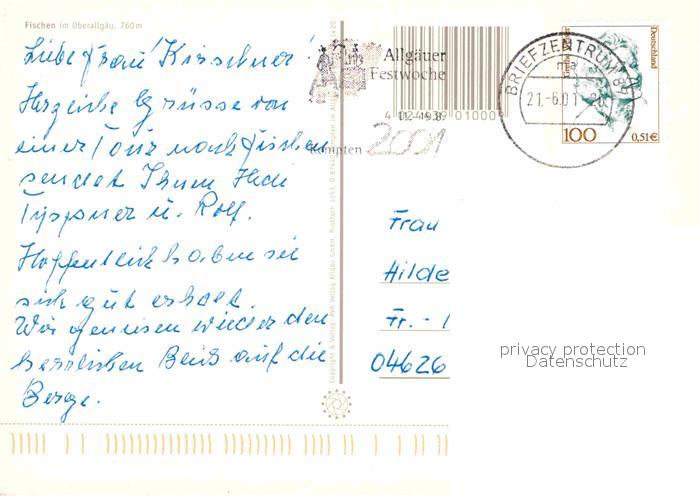 Fischen im Oberallgäu, 760 m
Liebe Frau Kirschner!
Herzliche Grüsse von
einer Tour nach Fischen
sendet Ihnen Hedi
Tippner u. Rolf.
Hoffentlich haben sie
sich gut erholt.
Wir geniesen wieder den
herrlichen Blick auf die
Berge.
Allgäuer
Festwoche
Kempten 2001
4 024939 01000
BRIEFZENTRUM 87
ma
21.-6.01
Deutschland
100
0,51€
Frau
Hilde
Fr. -
04626
privacy protection
Datenschutz